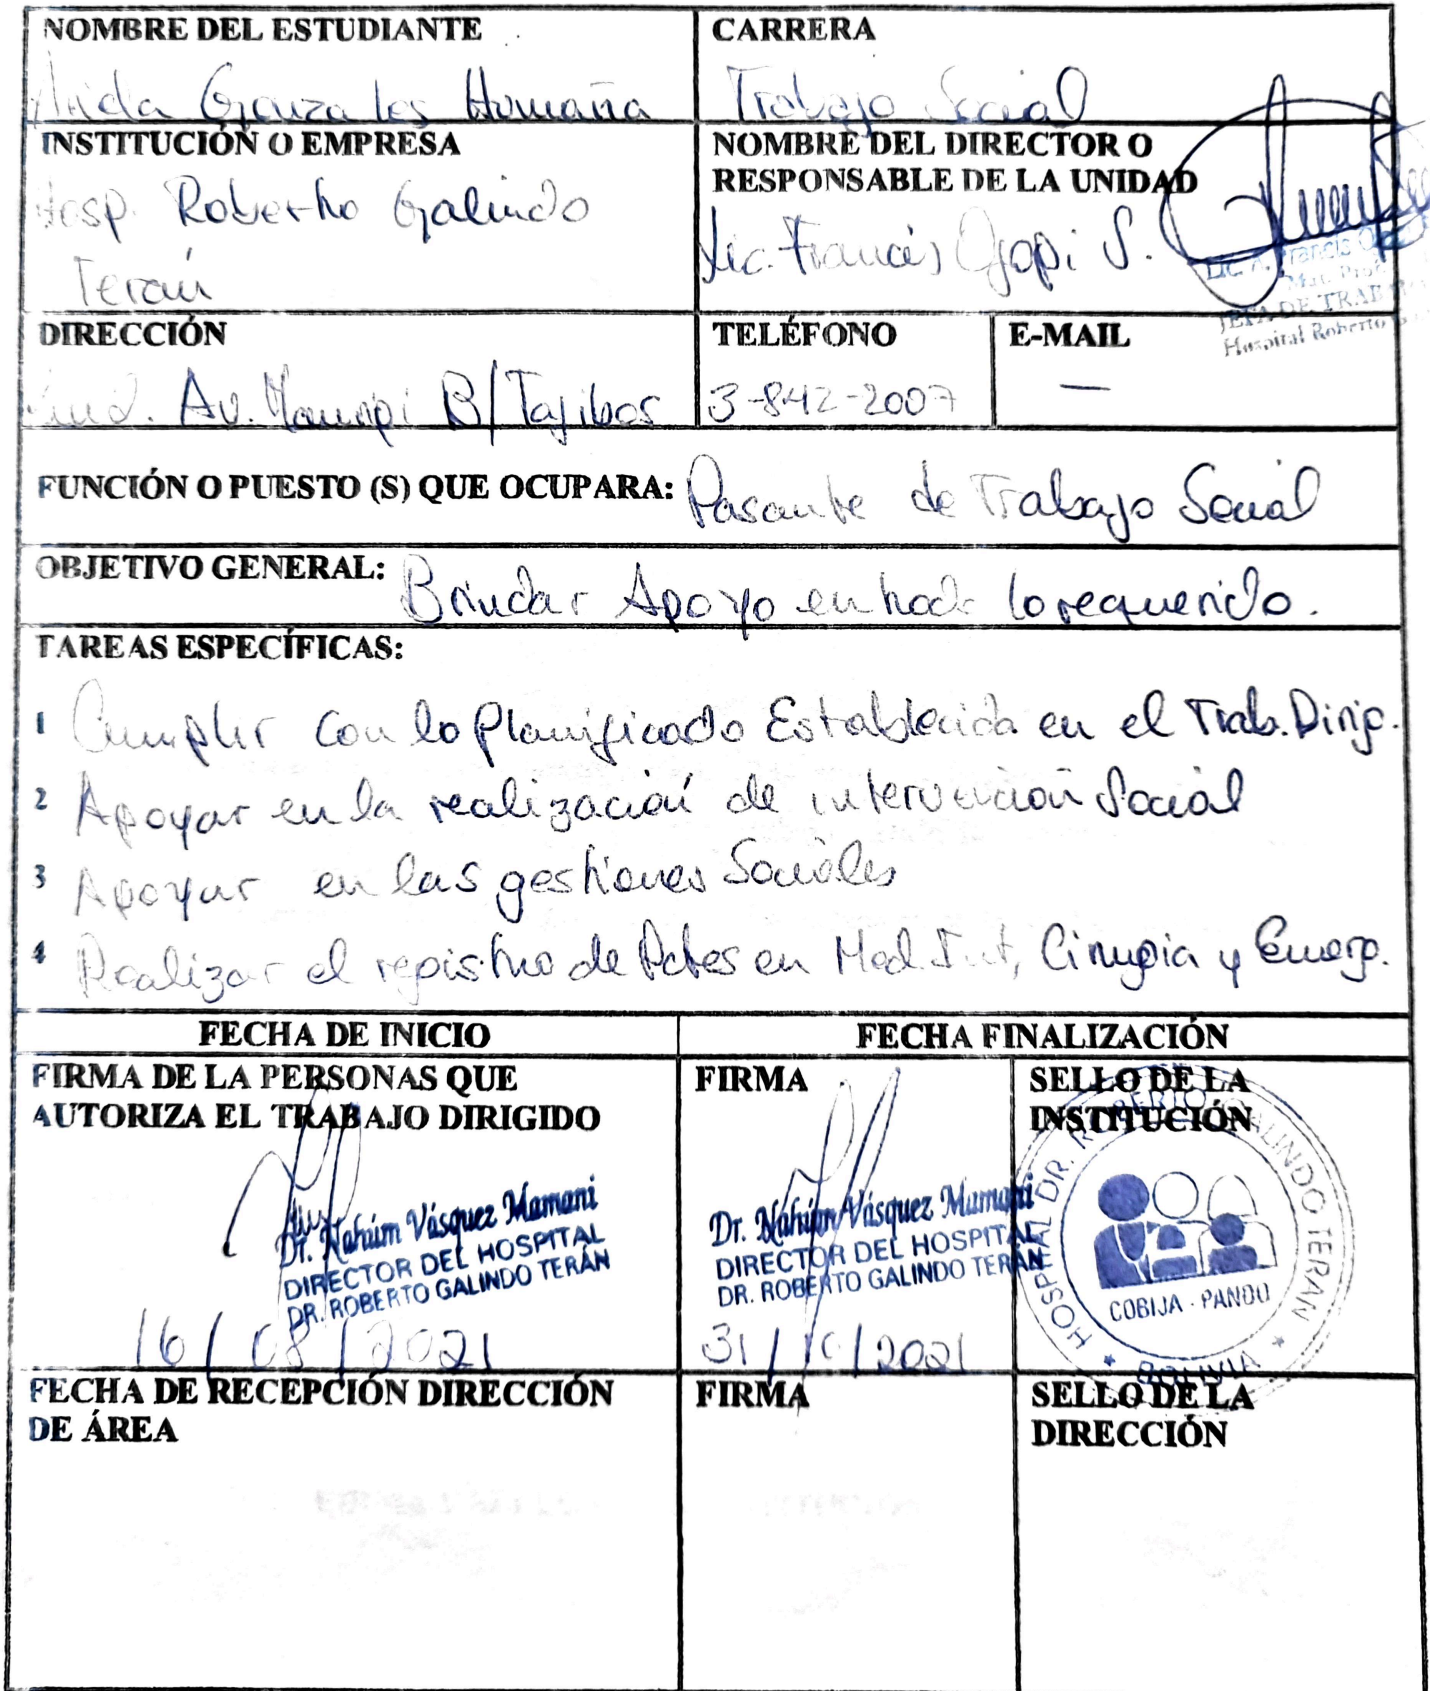 NOMBRE DEL ESTUDIANTE
Aida Gonzales Humaña
CARRERA
Trabajo Social
INSTITUCIÓN O EMPRESA
Hosp. Roberto Galindo
Terán
NOMBRE DEL DIRECTOR O
RESPONSABLE DE LA UNIDAD
Lic. Francis Ojopi S.
Lic. A. Francis
JEFA DE TRAB
Hospital Roberto
DIRECCIÓN
Av. Mamopi B/Tajibos
TELÉFONO
3-842-2007
E-MAIL
—
FUNCIÓN O PUESTO (S) QUE OCUPARA: Pasante de Trabajo Social
OBJETIVO GENERAL: Brindar Apoyo en todo lo requerido.
TAREAS ESPECÍFICAS:
1 Cumplir con lo Planificado Establecida en el Trab. Dirig.
2 Apoyar en la realización de intervención Social
3 Apoyar en las gestiones Sociales
4 Realizar el registro de Pctes en Med. Int, Cirugia y Emerg.
FECHA DE INICIO
FECHA FINALIZACIÓN
FIRMA DE LA PERSONAS QUE
AUTORIZA EL TRABAJO DIRIGIDO
Dr. Nahúim Vásquez Mamani
DIRECTOR DEL HOSPITAL
DR. ROBERTO GALINDO TERÁN
16/08/2021
FIRMA
Dr. Nahúim Vásquez Mamani
DIRECTOR DEL HOSPITAL
DR. ROBERTO GALINDO TERÁN
31/10/2021
SELLO DE LA
INSTITUCIÓN
HOSPITAL DR. ROBERTO GALINDO TERAN
COBIJA - PANDO
* BOLIVIA *
FECHA DE RECEPCIÓN DIRECCIÓN
DE ÁREA
FIRMA
SELLO DE LA
DIRECCIÓN